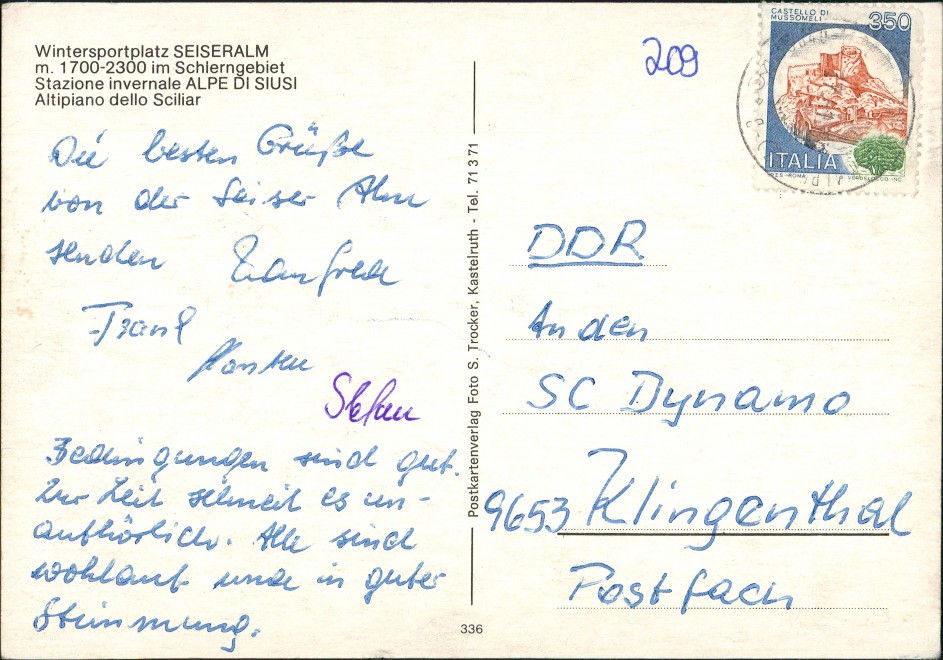 Wintersportplatz SEISERALM
m. 1700-2300 im Schlerngebiet
Stazione invernale ALPE DI SIUSI
Altipiano dello Sciliar
Die besten Grüße
von der Seiser Alm
senden Manfred
Frank
Karsten
Stefan
Bedingungen sind gut.
Zur Zeit schneit es un-
aufhörlich. Alle sind
wohlauf und in guter
Stimmung.
Postkartenverlag Foto S. Trocker, Kastelruth - Tel. 71 3 71
336
209
CASTELLO DI
MUSSOMELI
350
ITALIA
DDR
An den
SC Dynamo
9653 Klingenthal
Postfach